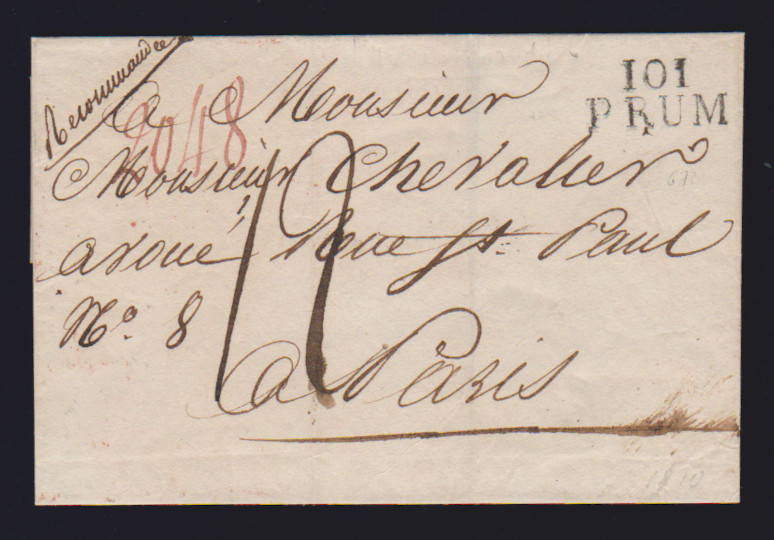 Recommandée
2048
101
PRUM
A Monsieur
Monsieur Chevalier
avoué, Rue St. Paul
No. 8
a Paris